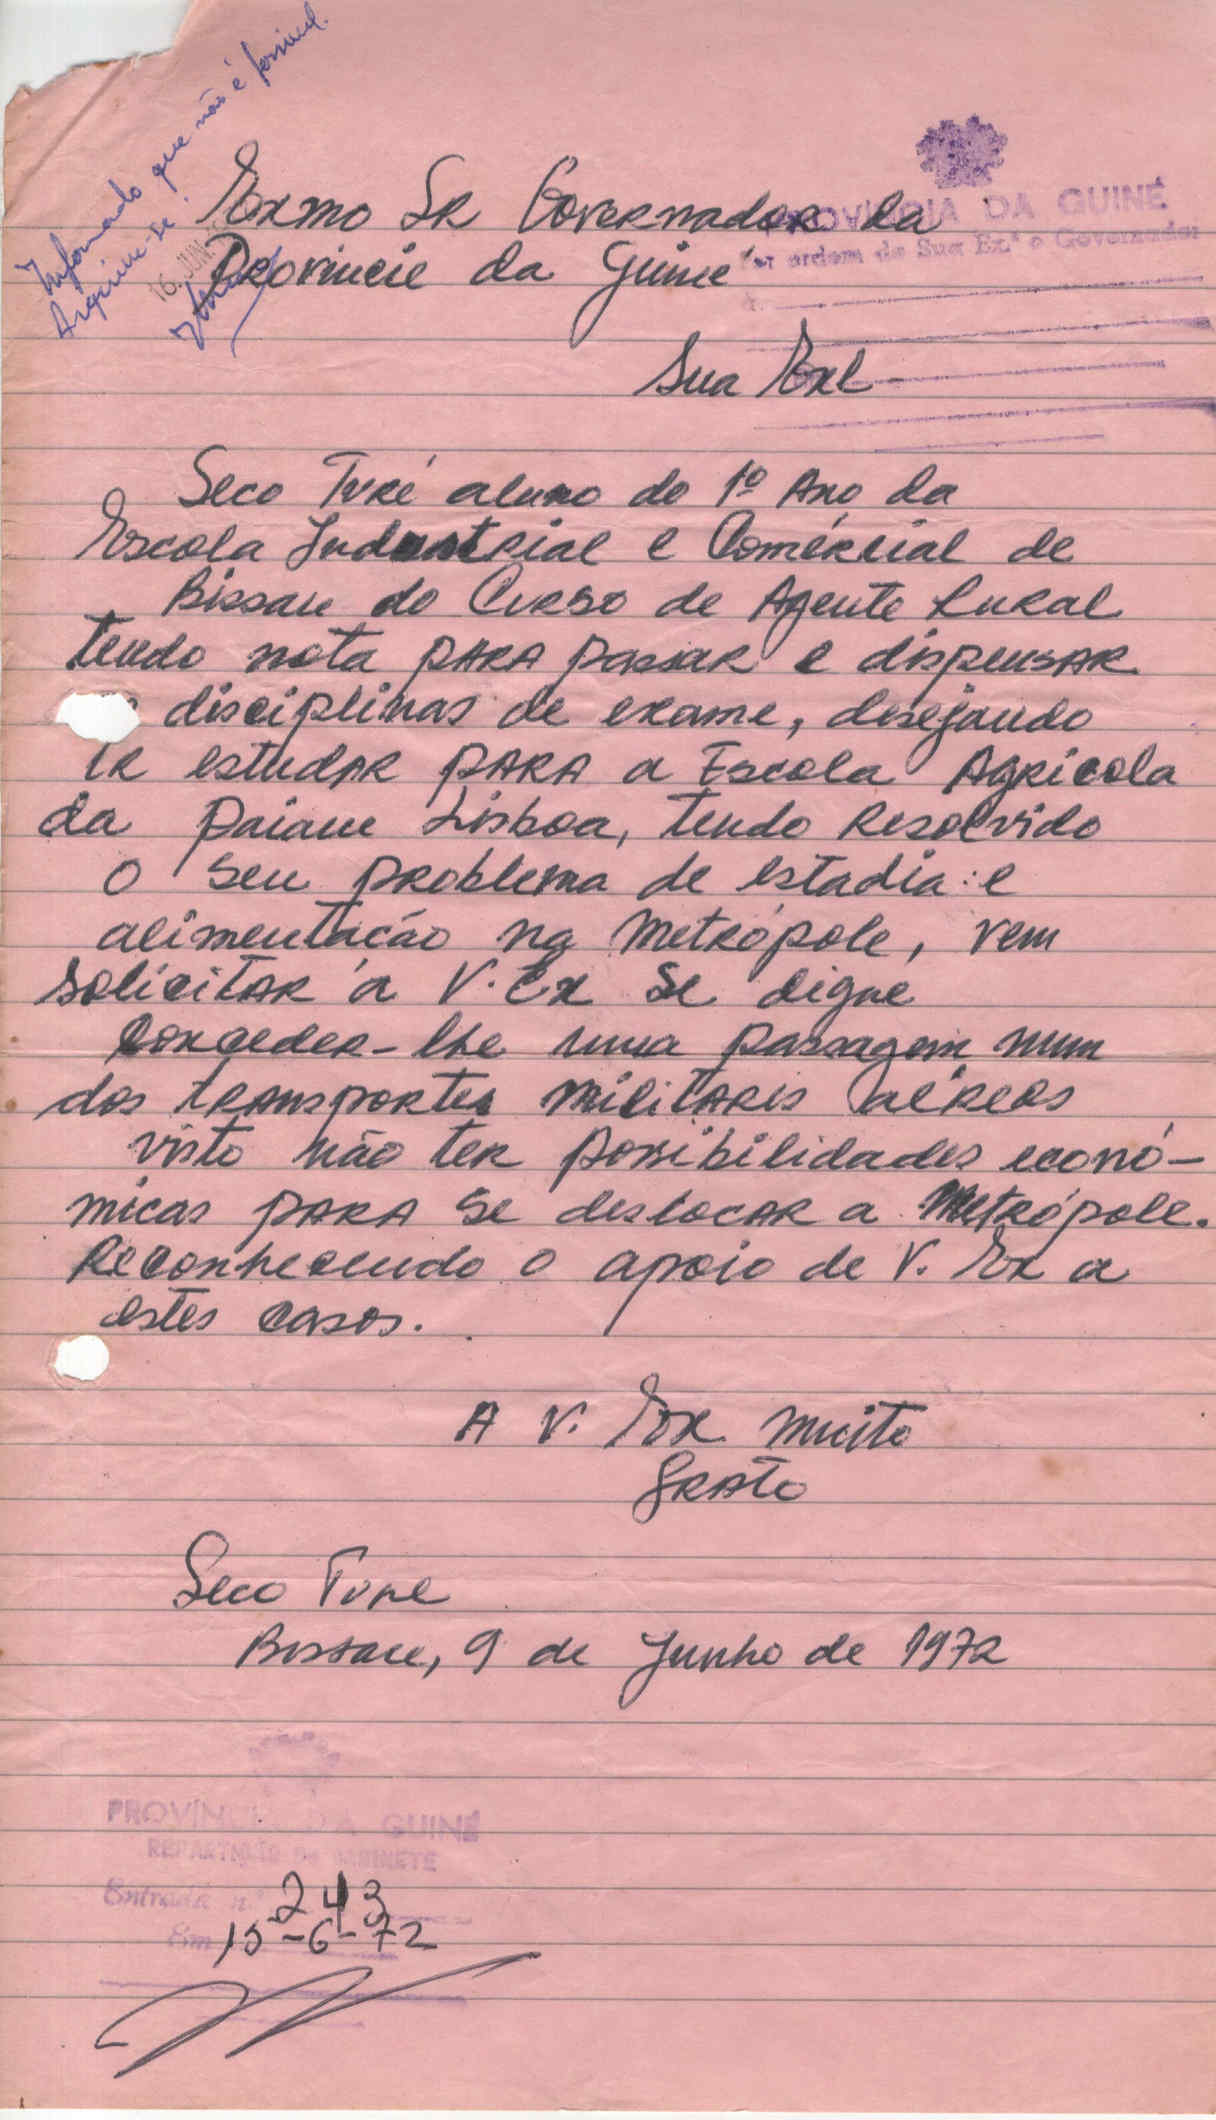 Informado que não é possível.
Arquive-se.
16. JUN.
PROVÍNCIA DA GUINÉ
Por ordem de Sua Ex.ª o Governador
Exmo SR Governador da
Provincie da Guiné
Sua Exl
Seco Turé aluno do 1º Ano da
Escola Industrial e Comércial de
Bissau do Curso de Agente Rural
tendo nota PARA passar e dispensar
disciplinas de exame, desejando
IR estudar PARA a Escola Agricola
da paiane Lisboa, tendo Resolvido
o seu problema de estadia e
alimentacão na Metrópole, vem
solicitar a V. Ex Se digne
Conceder-lhe uma passagem num
dos transportes militares aéreos
visto não ter possibilidades econó-
micas PARA se deslocar a Metrópole.
Reconhecendo o apoio de V. Ex a
estes casos.
A V. Ex muito
Grato
Seco Ture
Bissau, 9 de Junho de 1972
PROVÍNCIA DA GUINÉ
REPARTIÇÃO DO GABINETE
Entrada n.º 243
Em 15-6-72